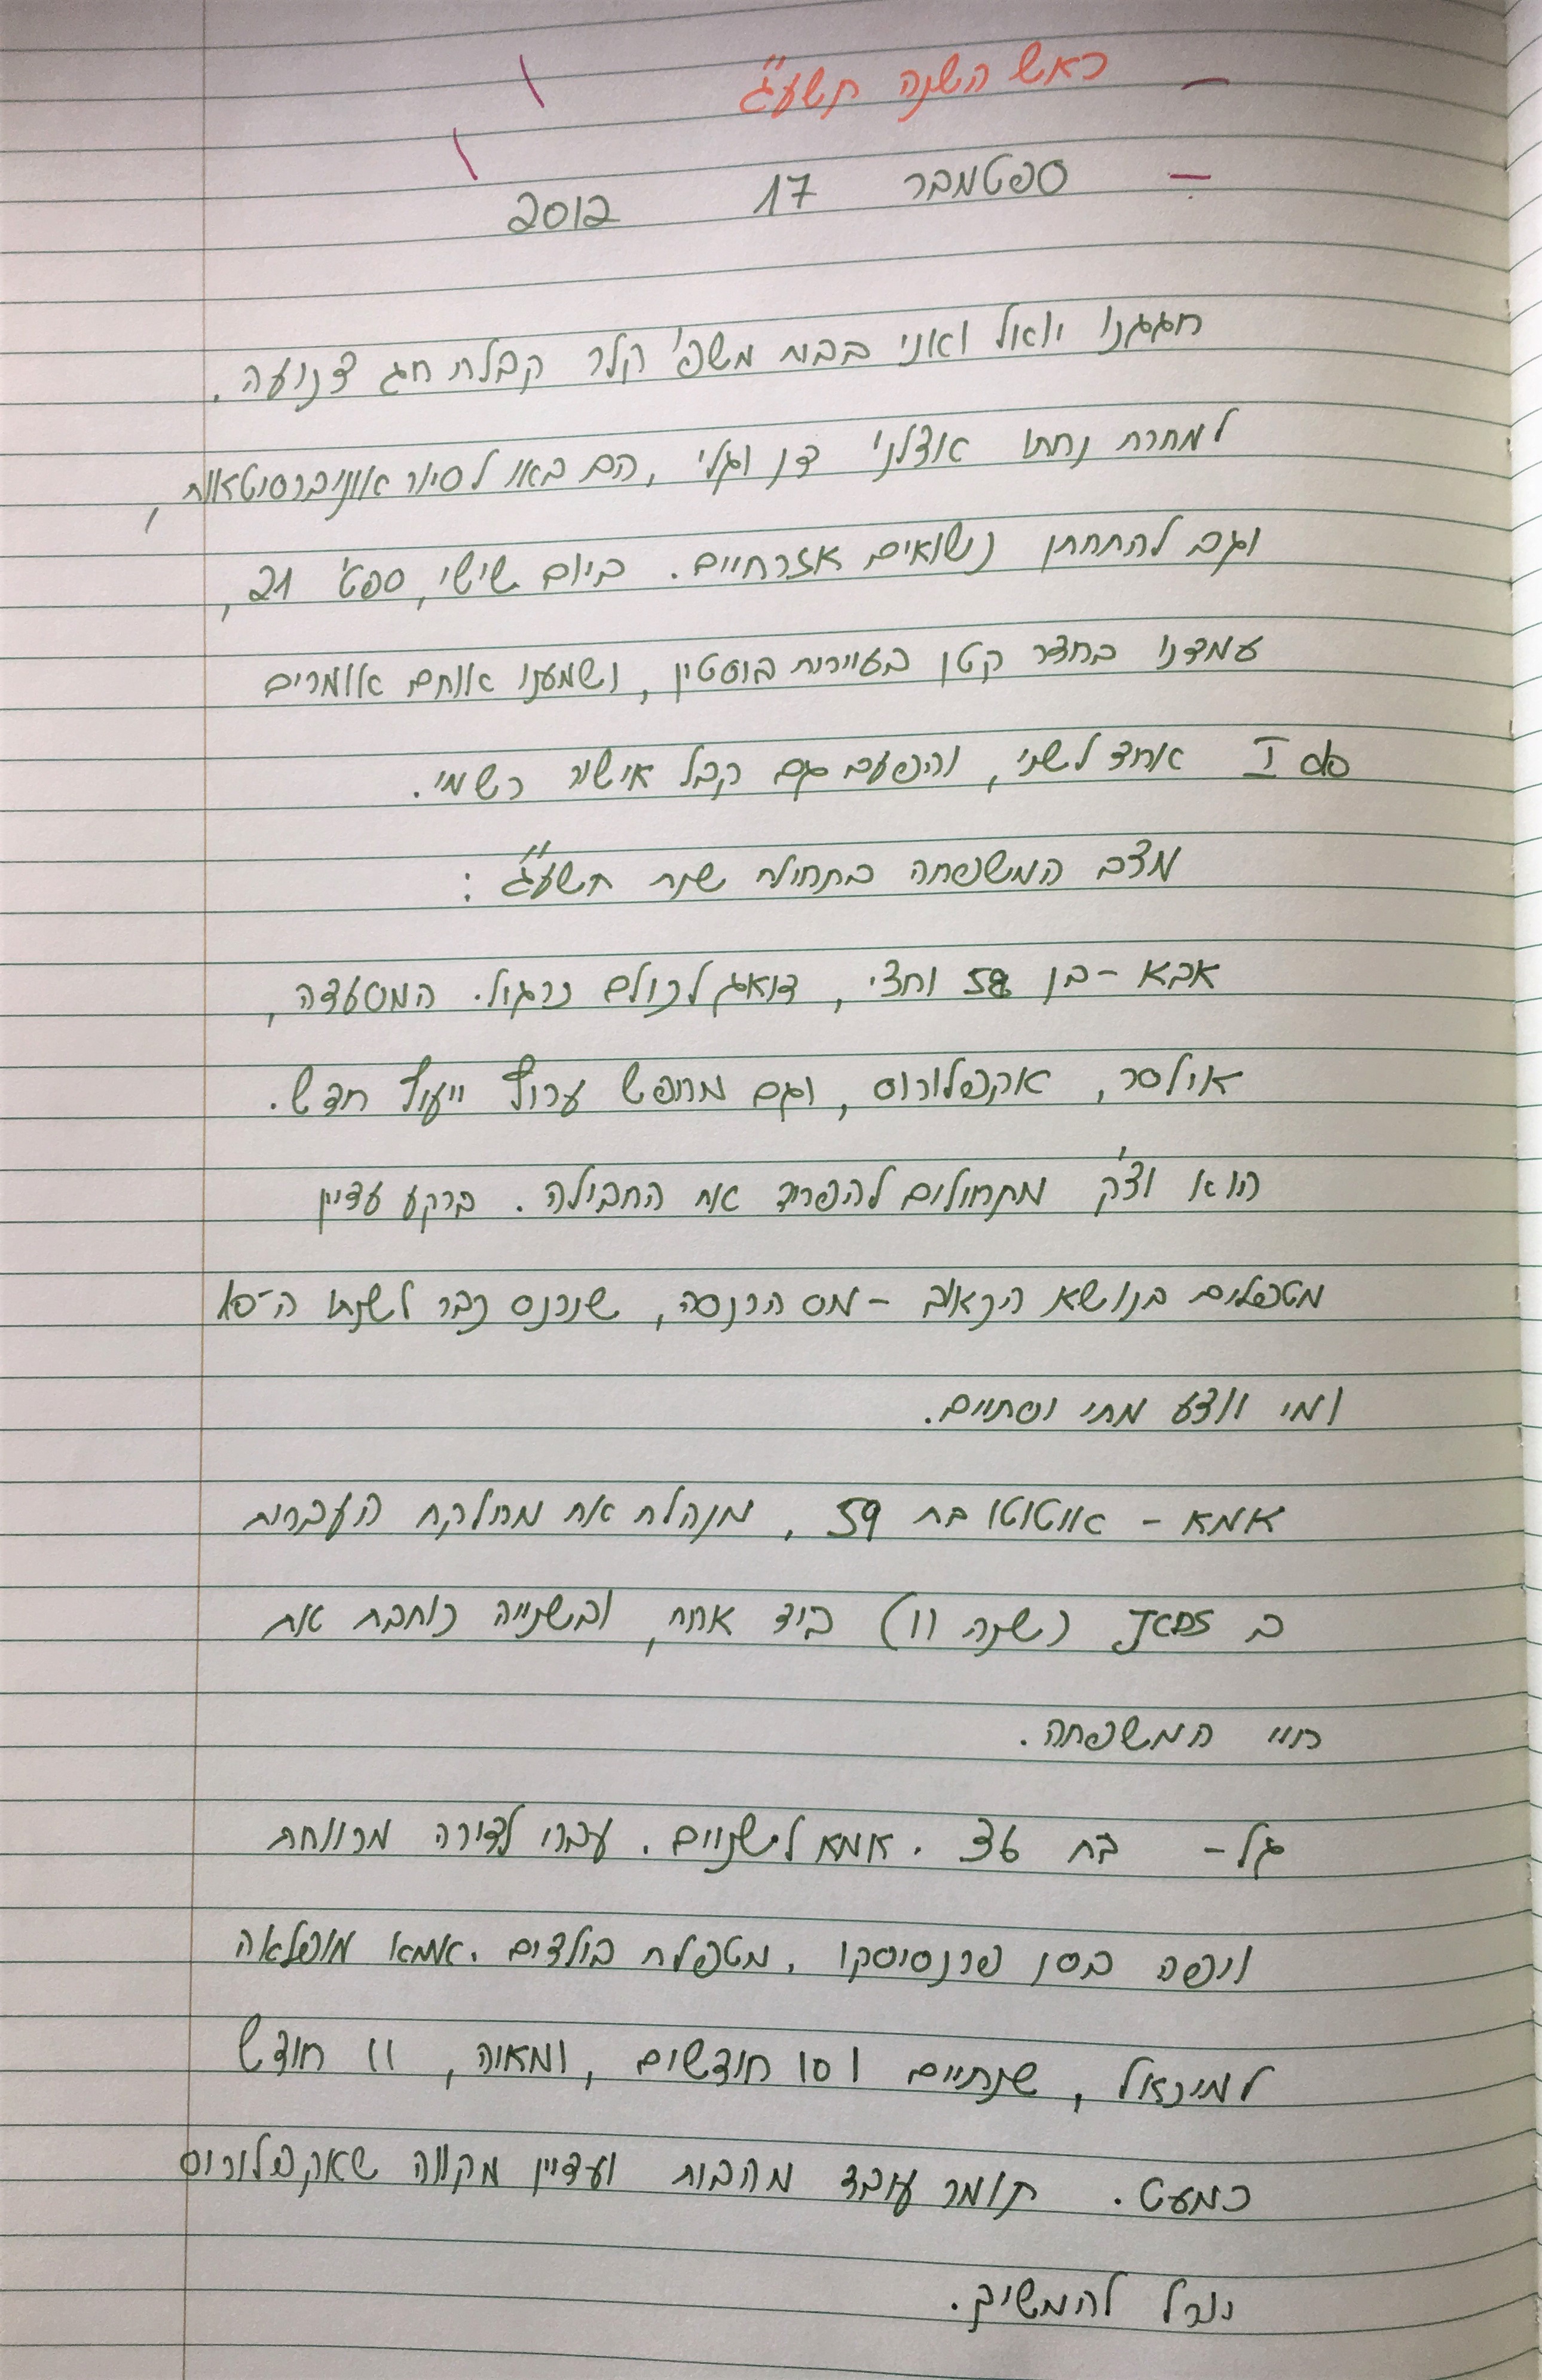 ראש השנה תשע"ג
ספטמבר 17 2012
חגגנו יואל ואני בבית משפ' קלר קבלת חג צנועה.
למחרת נחתו אצלנו דן וגלי, הם באו לסיור אוניברסיטאות,
וגם להתחתן נישואים אזרחיים. ביום שישי, ספט' 21,
עמדנו בחצר קטן בעיירות בוסטון, ושמענו אותם אומרים
I do אחד לשני, והפעם גם קבל אישור רשמי.
מצב המשפחה בתחילת שנת תשע"ג:
אבא - בן 58 וחצי, דואג לכולם כרגיל. המסעדה,
אולסר, אקפלורוס, וגם מחפש ערוץ ייעוץ חדש.
הוא וצ'ק מתחילים להפריד את החבילה. ברקע עדיין
מטפלים בנושא הכאוב - מס הכנסה, שנכנס כבר לשנתו ה-10
ומי יודע מתי יסתיים.
אמא - אוטוטו בת 59, מנהלת את מחלקת העברית
ב JCDS (שנה 11) ביד אחת, ובשנייה כותבת את
חיי המשפחה.
גל - בת 36. אמא לשניים. עברו לדירה מרווחת
ויפה בסן פרנסיסקו. מטפלת בילדים. אמא מופלאה
למיכאל, שנתיים ו 10 חודשים, ומאיה, 11 חודש
כמעט. תומר עובד מהבית ועדיין מקווה שאקפלורוס
יוכל להמשיך.